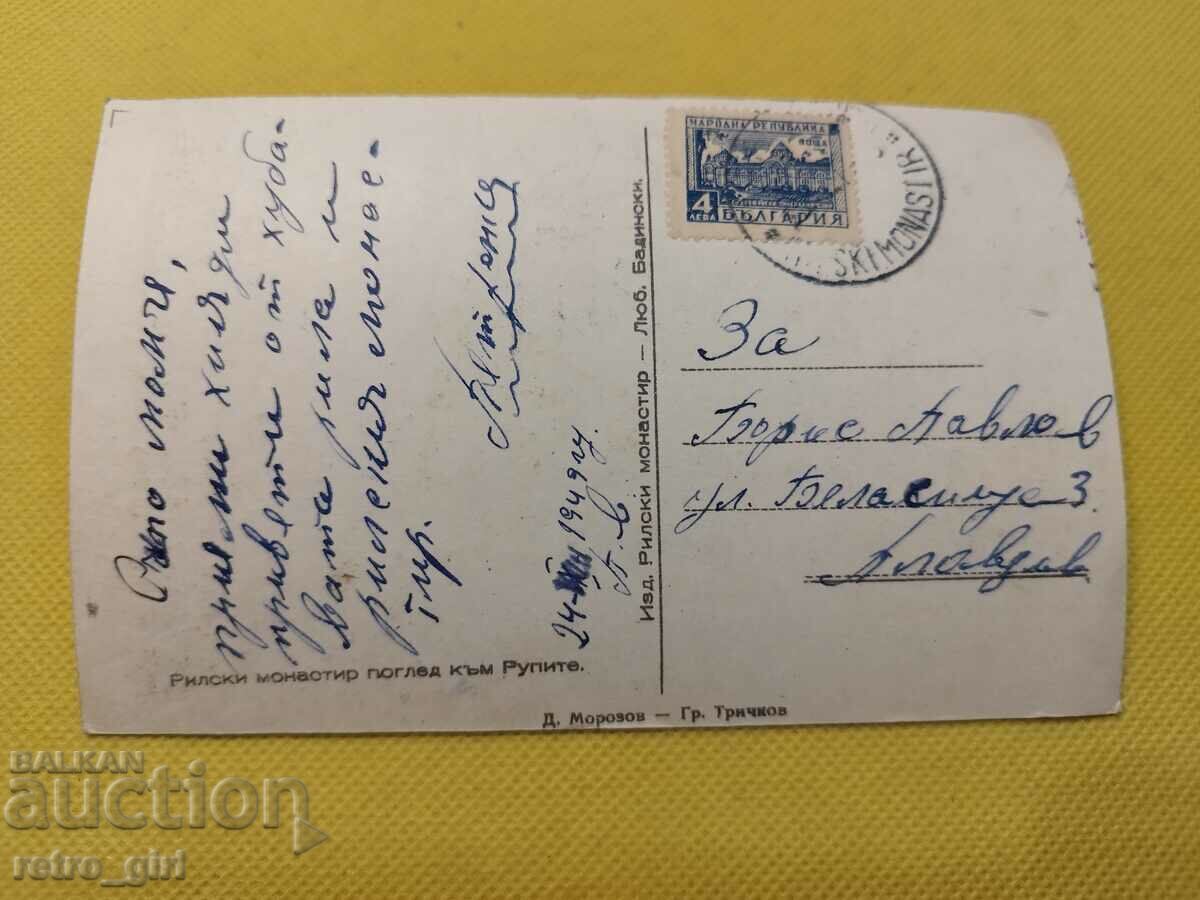 приеми хиляди
привети от хуба-
вата рила и
рилския монас-
тир.
24- 1949 г.
Рилски монастир поглед към Рупите.
Изд. Рилски монастир — Люб. Бадински.
Д. Морозов — Гр. Тричков
НАРОДНА РЕПУБЛИКА
4 ЛЕВА
БЪЛГАРИЯ
SKI MONASTIR
За
Борис Павлов
ул. Беласица 3
Пловдив
BALKAN
auction
retro_girl